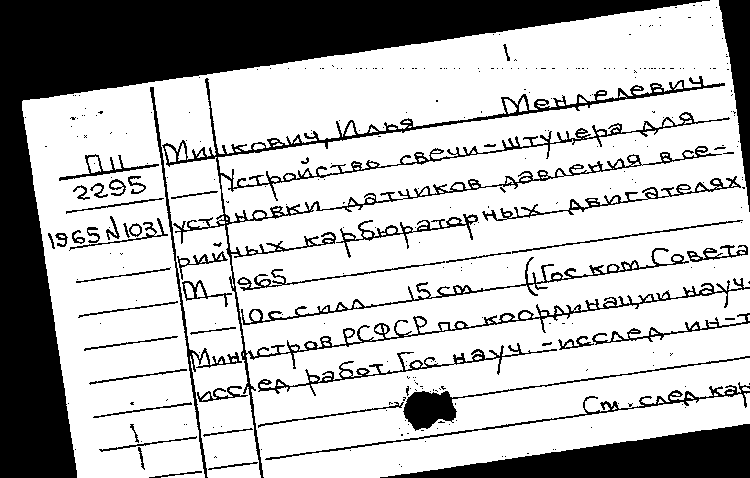 1
Мишкович, Илья Менделевич
ПП
2295
1965 N1031
Устройство свечи-штуцера для
установки датчиков давления в се-
рийных карбюраторных двигателях
М, 1965
10с с илл. 15 cm. (Гос ком. Совета
Министров РСФСР по координации науч.-
исслед работ. Гос науч.-исслед ин-т
См. след кар